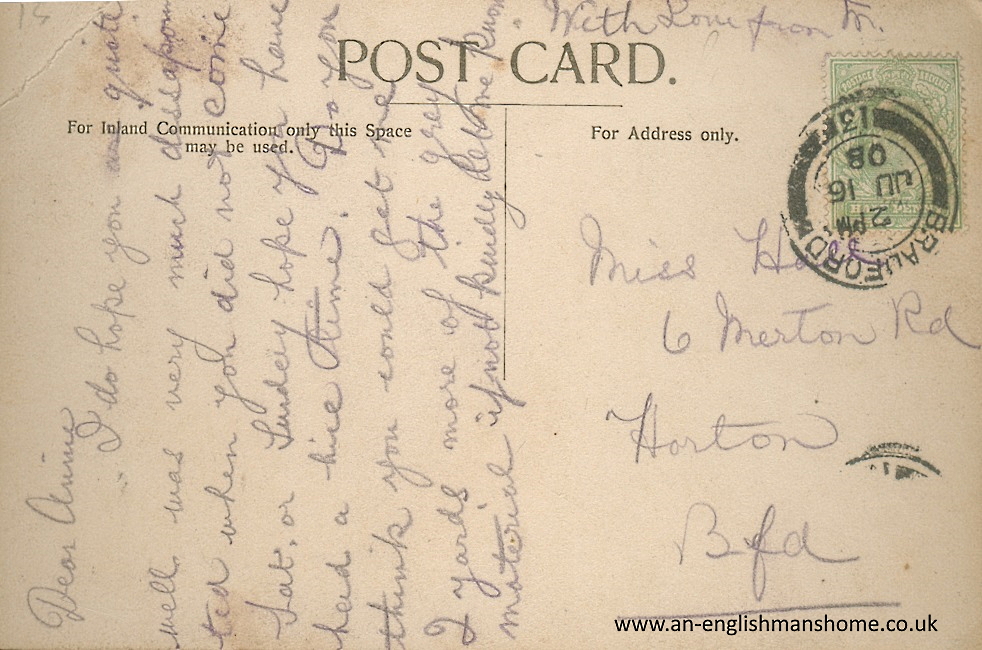 With Love from
POST CARD.
For Inland Communication only this Space
may be used.
For Address only.
BRADFORD
2 PM
JU 16
08
Dear Annie
I do hope you are quite
well. was very much disapoin
ted when you did not come
Sat. or Sunday hope you have
had a nice time. Do you
think you could get me
2 yards more of the grey
material if not kindly let me know
Miss Hall
6 Merton Rd
Horton
Bfd
www.an-englishmanshome.co.uk